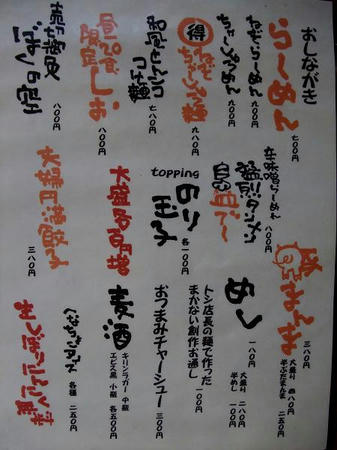 おしながき
らーめん 七〇〇円
ねぎらーめん 九〇〇円
ちゃーしゅーめん 九〇〇円
得 ねぎちゃーしゅー麺 九八〇円
和風とんこつつけ麺 七八〇円
昼20食限定 しお 八〇〇円
売切御免 八〇〇円
辛味噌らーめん 八〇〇円
topping
のり
玉子 各一〇〇円
大盛各百円増
太陽円満餃子 三八〇円
豚まんま 三八〇円
大盛り 四八〇円
半ぶたまんま 二五〇円
めし 一八〇円
大盛り 二八〇円
半めし 一〇〇円
トシ店長の麺で作った
まかない創作お通し 一〇〇円
おつまみチャーシュー 三〇〇円
麦酒
キリンラガー 中瓶
エビス黒 小瓶 各五〇〇円
各種 二五〇円
生しぼりにんにく無料